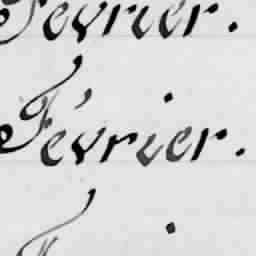 Février.
Février.